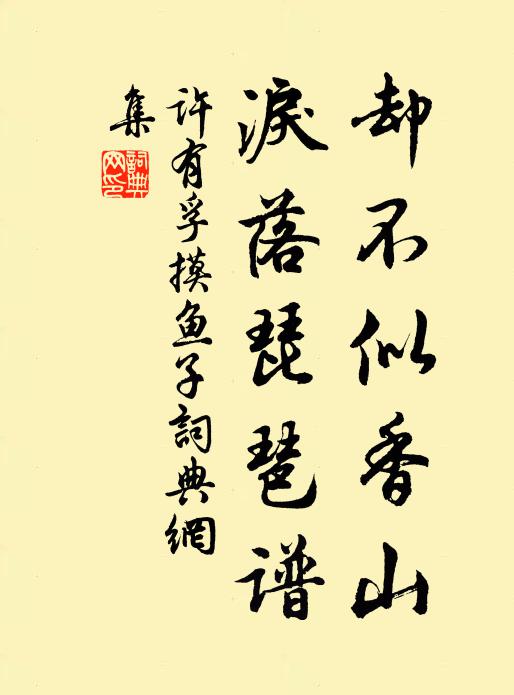 却不似香山
淚落琵琶谱
许有孚摸鱼子詞典網
集
詞典网印